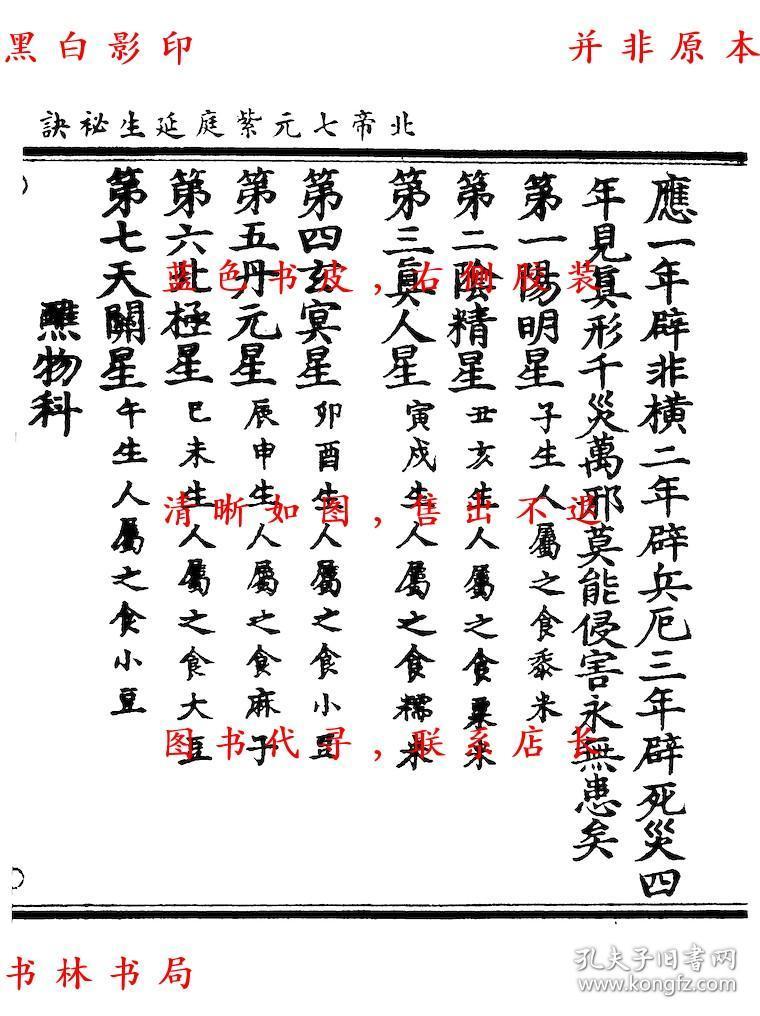 黑白影印
并非原本
北帝七元紫庭延生祕訣
應一年辟非橫二年辟兵厄三年辟死災四
年見真形千災萬邪莫能侵害永無患矣
第一陽明星子生人屬之食黍米
第二陰精星丑亥生人屬之食粟米
第三真人星寅戌生人屬之食糯米
第四玄冥星卯酉生人屬之食小豆
第五丹元星辰申生人屬之食麻子
第六北極星巳未生人屬之食大豆
第七天關星午生人屬之食小豆
醮物科
蓝色书皮，右侧胶装
清晰如图，售出不退
图书代寻，联系店长
书林书局
孔夫子旧书网
www.kongfz.com